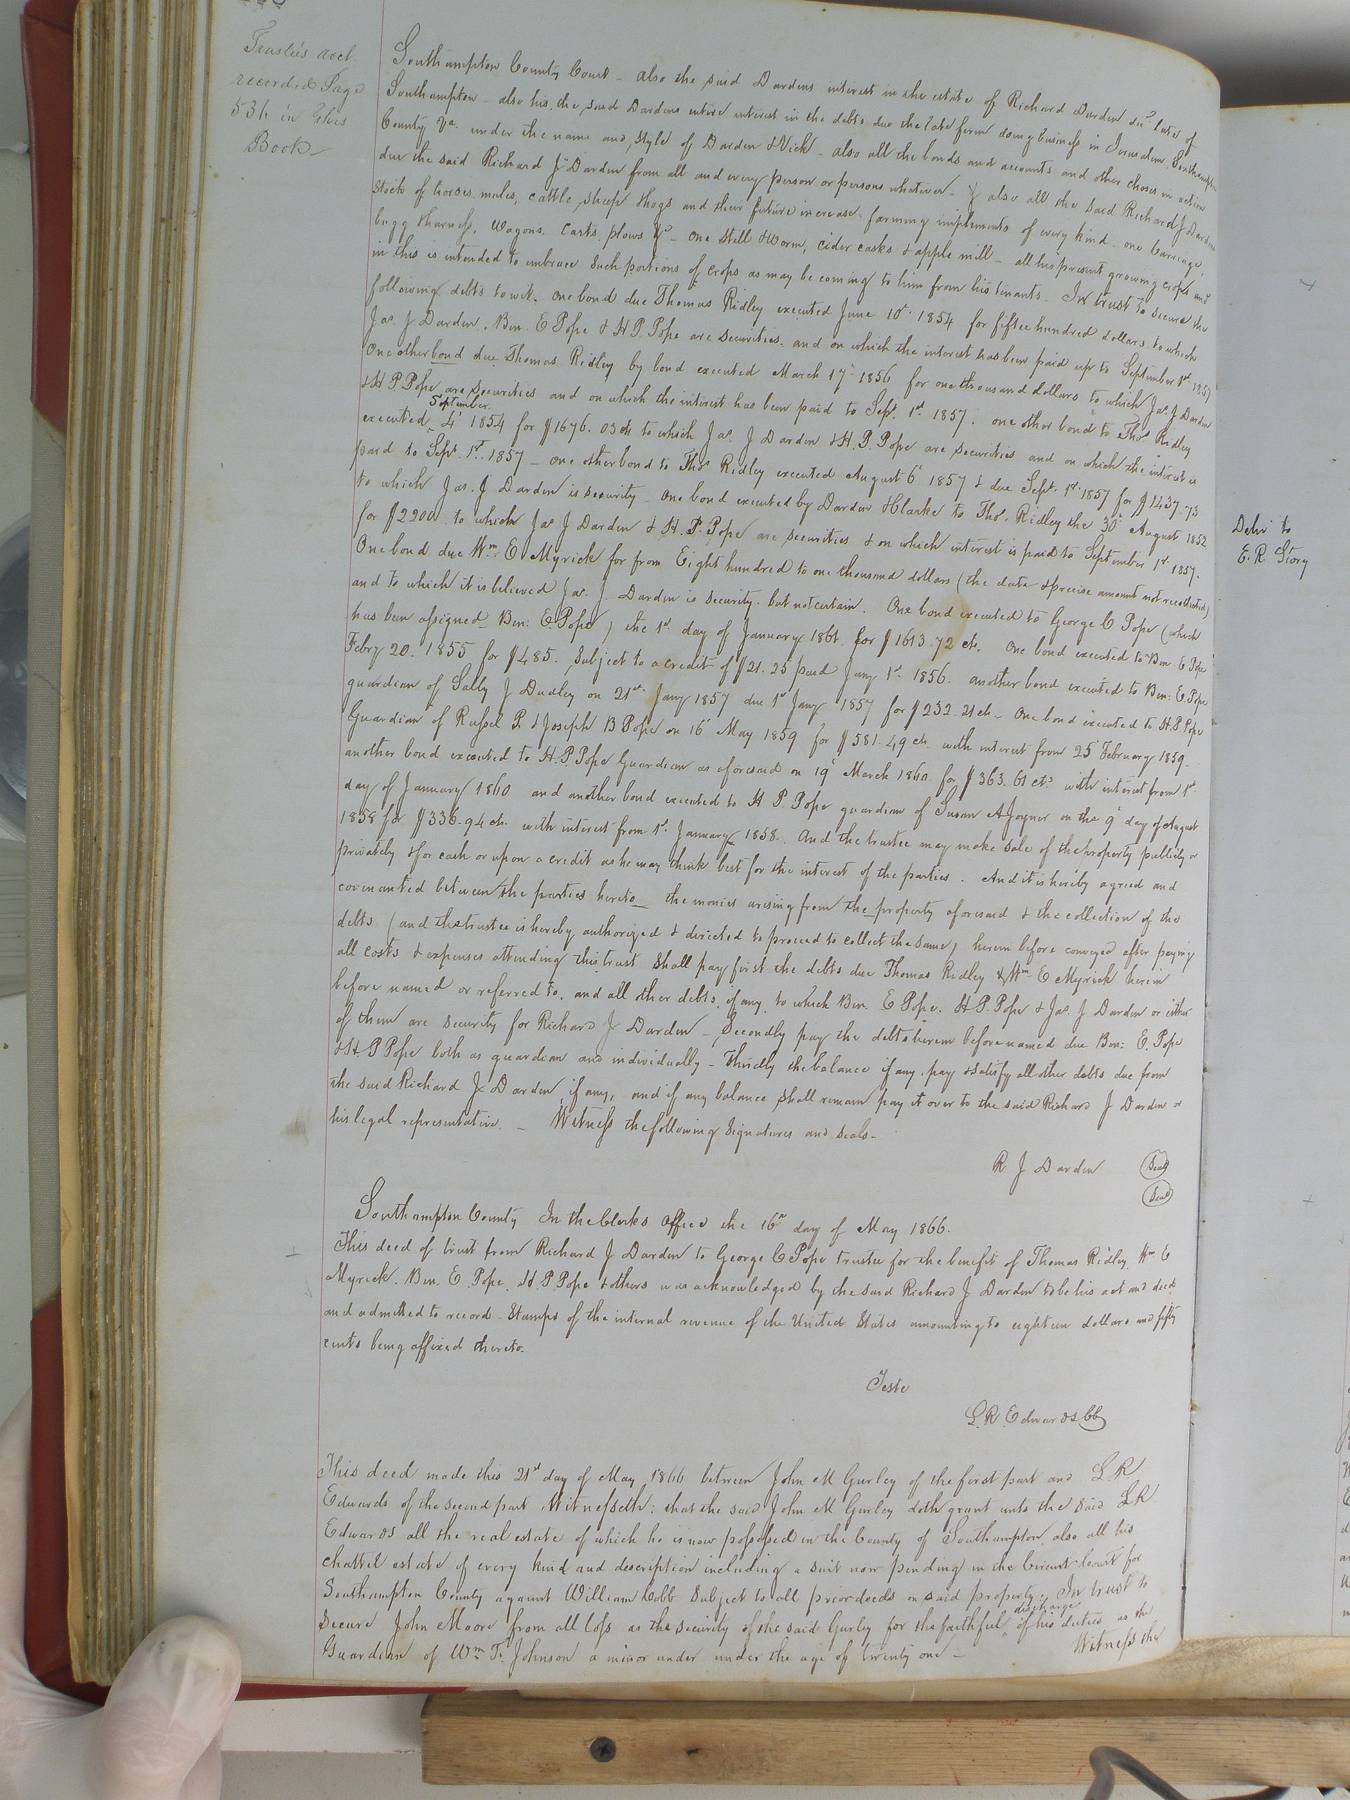 Trustees acct
recorded Page
534 in this
Book
Southampton County Court - also the said Dardens interest in the estate of Richard Darden decd late of
Southampton - also his, the said Dardens entire interest in the debts due the late firm doing business in Jerusalem, Southampton
County Va. under the name and style of Darden & Vick - also all the bonds and accounts and other choses in action
due the said Richard J Darden from all and every person or persons whatever - & also all the said Richard J Dardens
stock of horses, mules, cattle, sheep & hogs and their future increase, farming implements of every kind, one Carriage,
bugg & harness, Wagons, Carts, plows &c - one Still & Worm, cider casks & apple mill - all his present growing crops and
in this is intended to embrace such portions of crops as may be coming to him from his tenants. In trust to secure the
following debts to wit. one bond due Thomas Ridley executed June 10th 1854 for fifteen hundred dollars to which
Jas. J Darden, Ben. E Pope & H P Pope are securities - and on which the interest has been paid up to September 1st 1857
One other bond due Thomas Ridley by bond executed March 17th 1856 for one thousand dollars to which Jas. J Darden
& H P. Pope are securities and on which the interest has been paid to Sept. 1st 1857. one other bond to Thos Ridley
executed September 4' 1854 for $1676.03 cts to which Jas. J Darden & H. P. Pope are securities and on which the interest is
paid to Sept. 1st 1857 - one other bond to Thos Ridley executed August 6' 1857 & due Sept. 1st 1857 for $1437.73
to which Jas. J Darden is security - One bond executed by Darden & Clarke to Thos. Ridley the 30' August 1852
for $2200. to which Jas J Darden & H. P. Pope are securities & on which interest is paid to September 1st 1857.
One bond due Wm E Myrick for from Eight hundred to one thousand dollars (the date & precise amount not recollected)
and to which it is believed Jas. J. Darden is security, but not certain. One bond executed to George C Pope (which
has been assigned Ben: E. Pope) the 1st day of January 1861 for $1613.72 cts. One bond executed to Ben. E Pope
Febry 20. 1855 for $485. Subject to a credit of $21.25 paid Jany 1st 1856. another bond executed to Ben: E. Pope
guardian of Sally J Dudley on 21st Jany 1857 due 1st Jany 1857 for $232.21 cts - One bond executed to H. P. Pope
Guardian of Russel P. & Joseph B Pope on 16' May 1859 for $581.49 cts with interest from 25' February 1859 -
another bond executed to H. P. Pope Guardian as aforesaid on 19' March 1860 for $363.61 cts with interest from 1st
day of January 1860 and another bond executed to H P. Pope guardian of Susan A Joyner on the 9' day of August
1858 for $336.94 cts. with interest from 1st January 1858. And the trustee may make sale of the property publicly or
privately & for cash or upon a credit as he may think best for the interest of the parties. And it is hereby agreed and
covenanted between the parties hereto - the monies arising from the property aforesaid & the collection of the
debts (and the trustee is hereby authorized & directed to proceed to collect the same) herein before conveyed after paying
all costs & expenses attending this trust shall pay first the debts due Thomas Ridley & Wm E Myrick herein
before named or referred to, and all other debts, if any, to which Ben. E Pope, H P. Pope & Jas. J Darden or either
of them are security for Richard J Darden - Secondly pay the debts herein before named due Ben: E. Pope
& H. P Pope both as guardian and individually - Thirdly the balance if any, pay & satisfy all other debts due from
the said Richard J. Darden, if any, and if any balance shall remain pay it over to the said Richard J Darden or
his legal representative. - Witness the following signatures and seals -
R J Darden Seal
Seal
Southampton County In the Clerks Office the 16th day of May 1866.
This deed of trust from Richard J Darden to George C Pope trustee for the benefit of Thomas Ridley, Wm E
Myrick, Ben. E. Pope, H. P Pope & others was acknowledged by the said Richard J Darden to be his act and deed
and admitted to record - Stamps of the internal revenue of the United States amounting to eighteen dollars and fifty
cents being affixed thereto.
Teste
L. R. Edwards CC
This deed made this 21st day of May 1866 between John M Gurley of the first part and L R
Edwards of the second part Witnesseth: that the said John M Gurley doth grant unto the said L R
Edwards all the real estate of which he is now possessed in the County of Southampton, also all his
chattel estate of every kind and description including a suit now pending in the Circuit Court for
Southampton County against William Cobb Subject to all prior deeds on said property. In trust to
Secure John Moore from all loss as the security of the said Gurley for the faithful discharge of his duties as the
Guardian of Wm T. Johnson a minor under under the age of twenty one - Witness the
Delivd to
E. R Story